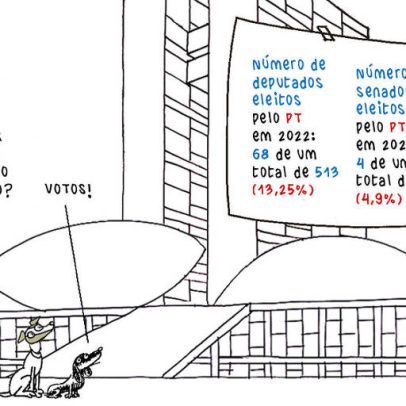 O
O?
VOTOS!
Número de
deputados
eleitos
pelo PT
em 2022:
68 de um
total de 513
(13,25%)
Número
senado
eleitos
pelo PT
em 202
4 de um
total d
(4,9%)